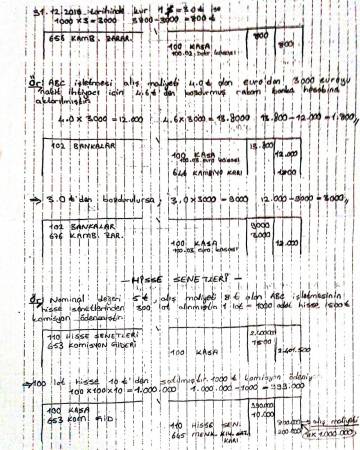 31.12.2018 tarihinde kur 1$=3.0₺ ise
1000 x 3 = 3000 3800-3000 = 800₺
656 KAMB. ZARAR. 800
100 KASA 800
Ör: ABC işletmesi alış maliyeti 4.0₺ olan euro'dan 3000 euroyu
nakit ihtiyacı için 4.6₺'den bozdurmuş banka hesabına
aktarılmıştır.
4.0 x 3000 = 12.000 4.6 x 3000 = 13.8000 13.800-12.000 = 1.800
102 BANKALAR 13.800
100 KASA 12.000
646 KAMBİYO KARI 1800
→ 3.0₺'den bozdurulursa; 3.0x3000=9000 12.000-9000=3000
102 BANKALAR 9000
656 KAMB. ZAR. 3000
100 KASA 12.000
- HİSSE SENETLERİ -
Ör: Nominal değeri 5₺, alış maliyeti 8₺ olan ABC işletmesinin
hisse senetlerinden 300 lot alınmıştır 1 lot - 1000 adet hisse 1500₺
komisyon ödenmiştir.
110 HİSSE SENETLERİ 2.400.000
653 KOMİSYON GİDERİ 1500
100 KASA 2.401.500
→ 100 lot hisse 10₺'den satılmıştır 1000₺ komisyon
100x100x10 = 1.000.000 1.000.000-1000 = 999.000
100 KASA
653 KOM. GİD
110 HİSSE SEN. 800.000 → alış maliyeti
645 MENK. KIY. SAT. 200.000
KARI